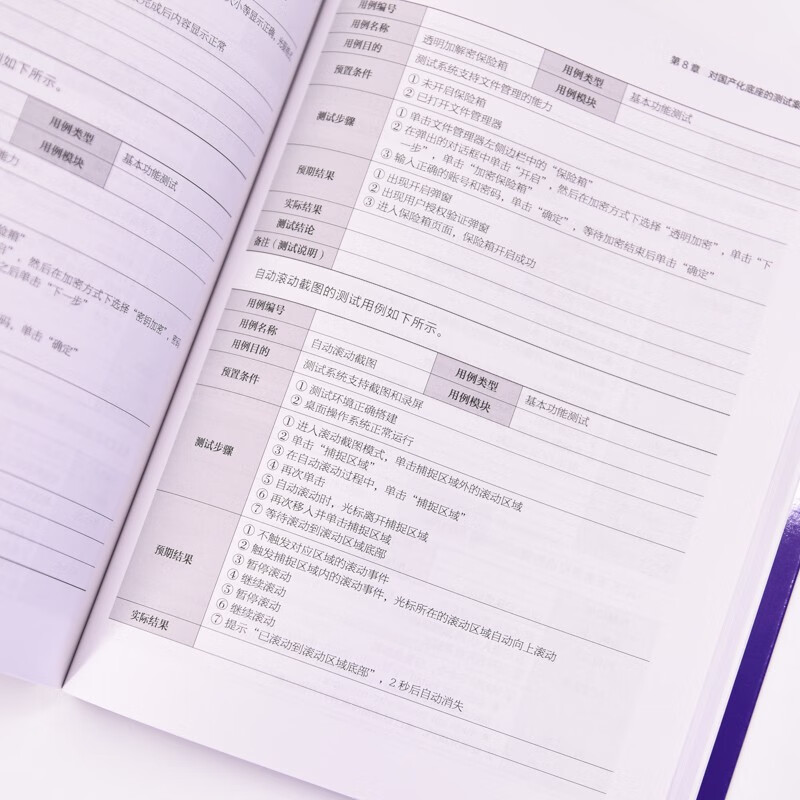 完成后内容显示正常
例如下所示。
用例类型
用例模块
基本功能测试
能力
险箱”
，然后在加密方式下选择“密钥加密”，
之后单击“下一步”
码，单击“确定”
第 8 章 对国产化底座的测试案
用例编号
用例名称
透明加解密保险箱
用例类型
基本功能测试
用例目的
测试系统支持文件管理的能力
用例模块
预置条件
① 未开启保险箱
② 已打开文件管理器
测试步骤
① 单击文件管理器左侧边栏中的“保险箱”
② 在弹出的对话框中单击“开启”，然后在加密方式下选择“透明加密”，单击“下
一步”，单击“加密保险箱”
③ 输入正确的账号和密码，单击“确定”，等待加密结束后单击“确定”
预期结果
① 出现开启弹窗
② 出现用户授权验证弹窗
③ 进入保险箱页面，保险箱开启成功
实际结果
测试结论
备注（测试说明）
自动滚动截图的测试用例如下所示。
用例编号
用例名称
自动滚动截图
用例类型
基本功能测试
用例目的
测试系统支持截图和录屏
用例模块
预置条件
① 测试环境正确搭建
② 桌面操作系统正常运行
测试步骤
① 进入滚动截图模式，单击捕捉区域外的滚动区域
② 单击“捕捉区域”
③ 在自动滚动过程中，单击“捕捉区域”
④ 再次单击
⑤ 自动滚动时，光标离开捕捉区域
⑥ 再次移入并单击捕捉区域
⑦ 等待滚动到滚动区域底部
预期结果
① 不触发对应区域的滚动事件
② 触发捕捉区域内的滚动事件，光标所在的滚动区域自动向上滚动
③ 暂停滚动
④ 继续滚动
⑤ 暂停滚动
⑥ 继续滚动
⑦ 提示“已滚动到滚动区域底部”，2 秒后自动消失
实际结果